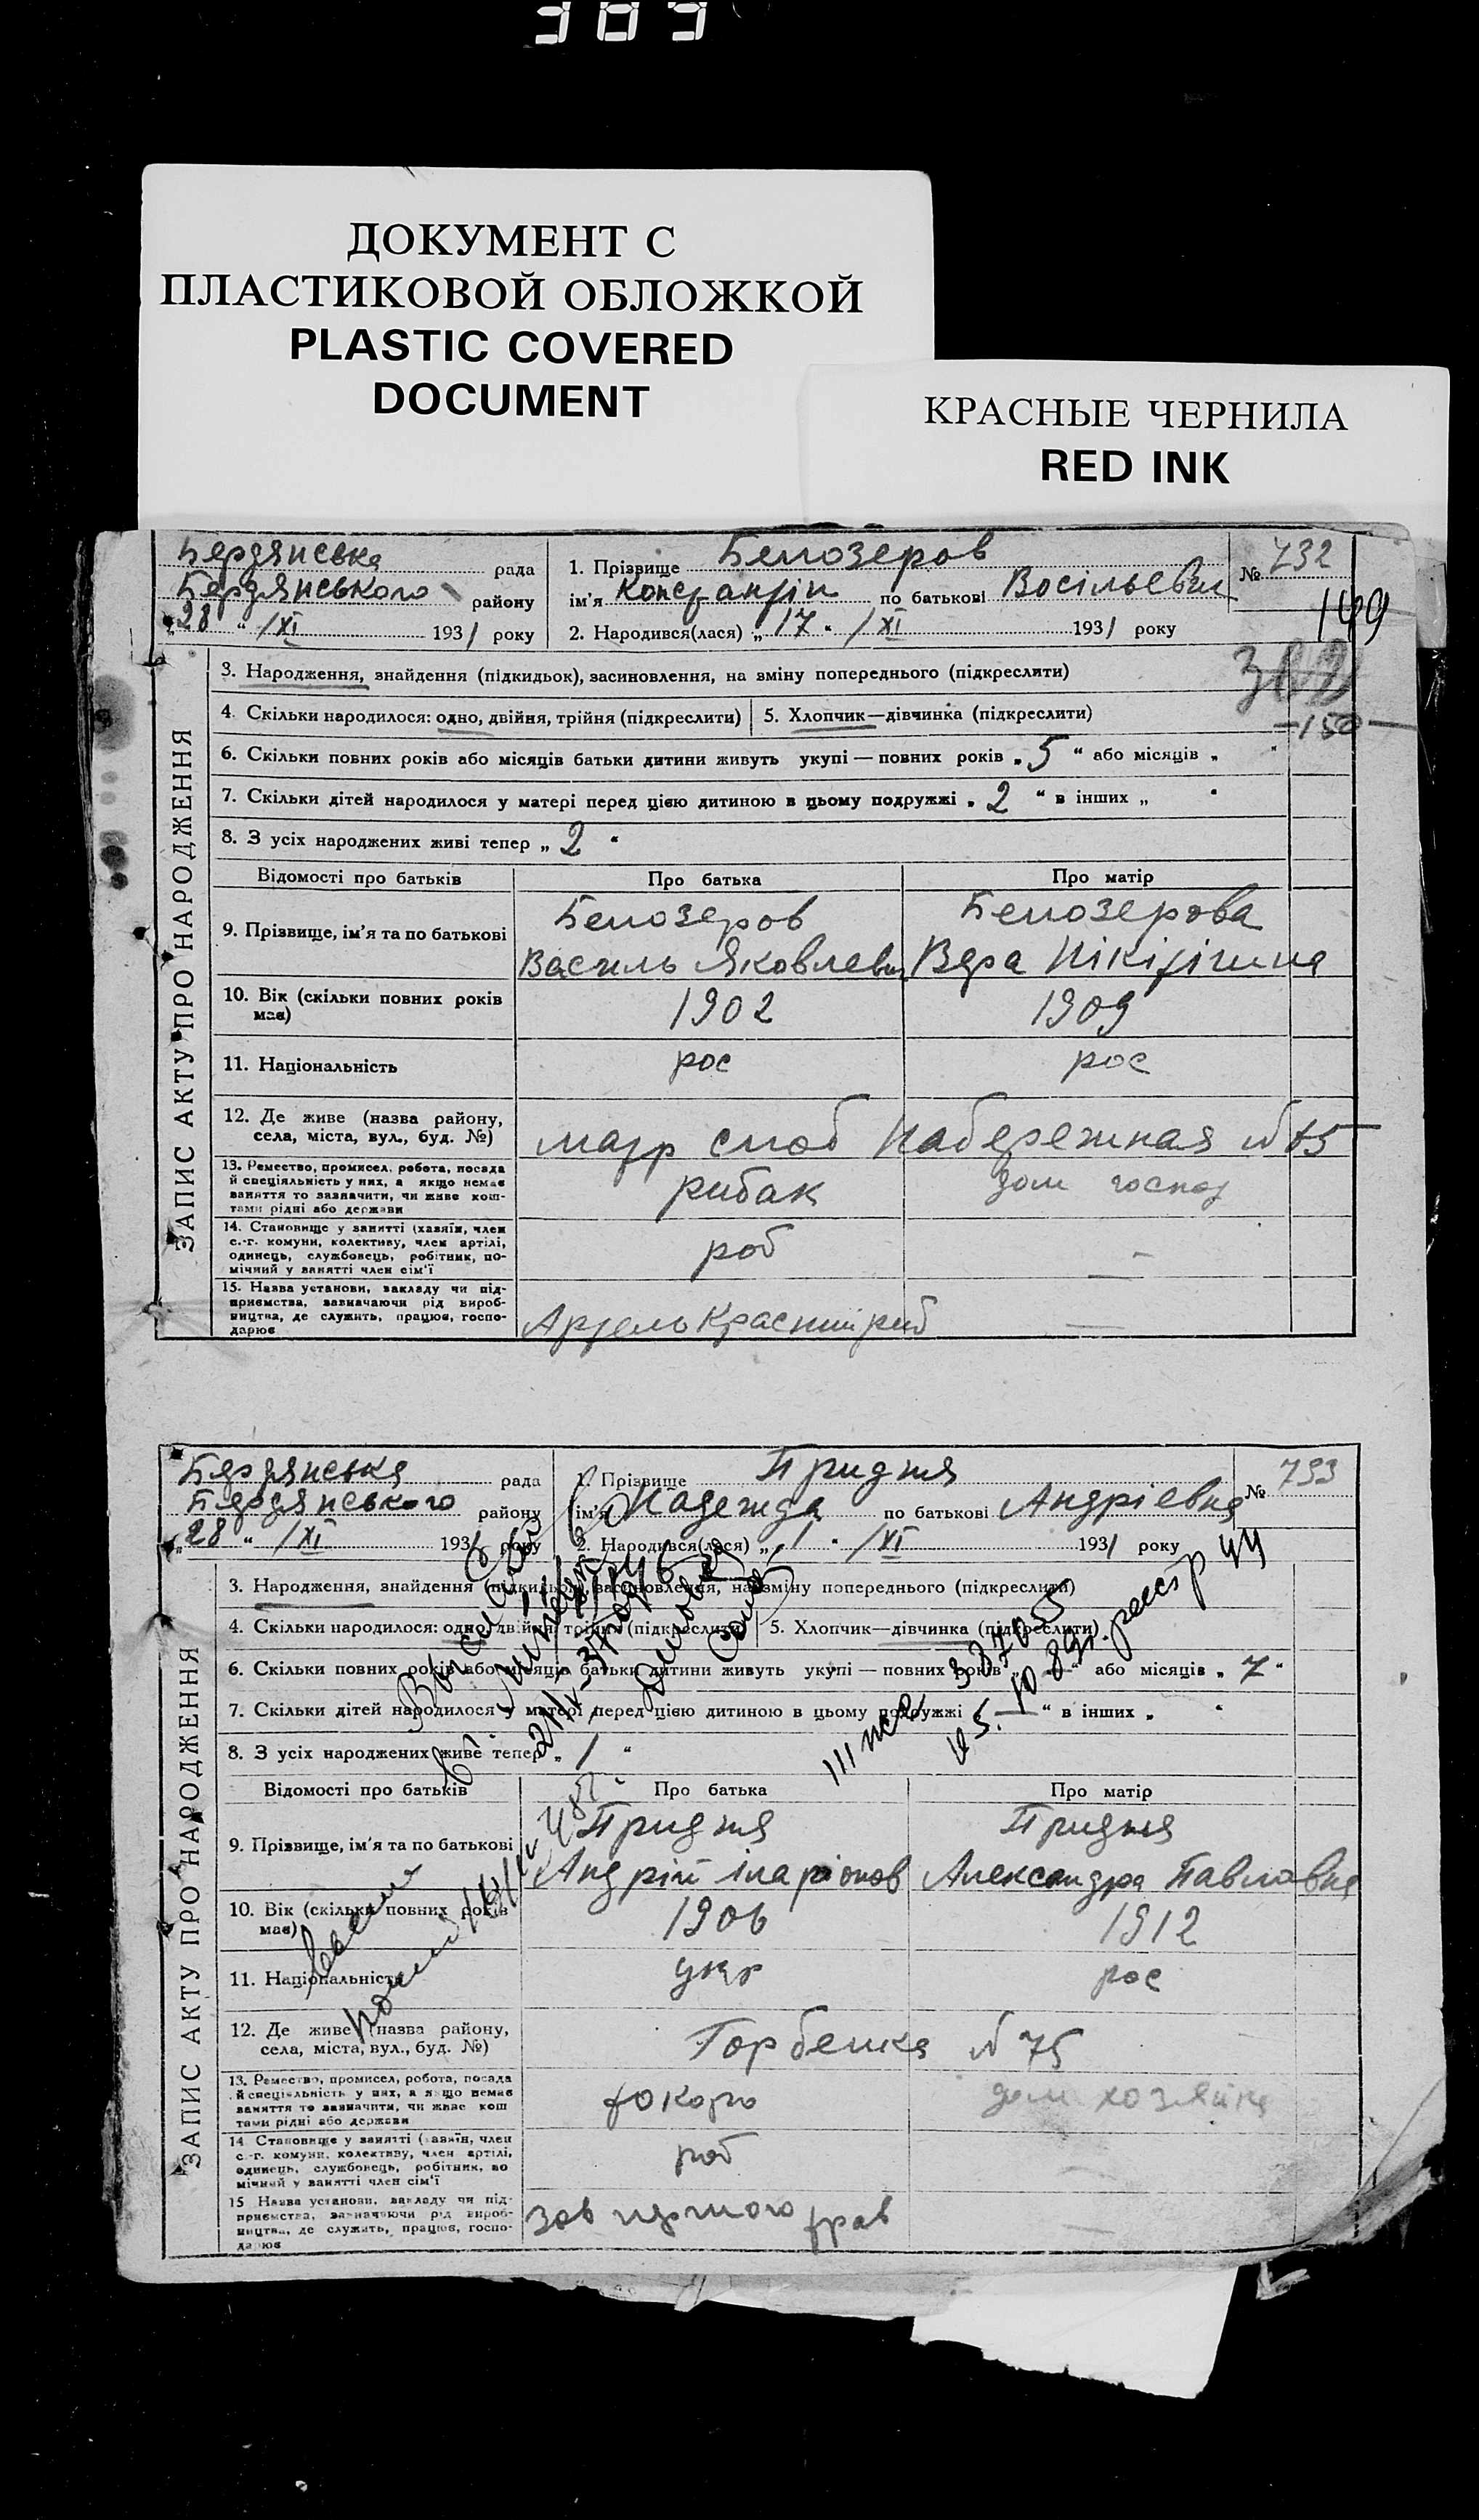 303
ДОКУМЕНТ С
ПЛАСТИКОВОЙ ОБЛОЖКОЙ
PLASTIC COVERED
DOCUMENT
КРАСНЫЕ ЧЕРНИЛА
RED INK
Бердянська рада
Бердянського району
„28“ /XI 1931 року
1. Прізвище Белозеров
ім'я Константін по батькові Восільевич
2. Народився(лася) „17“ /XI 1931 року
№ 732
149
150
ЗАПИС АКТУ ПРО НАРОДЖЕННЯ
3. Народження, знайдення (підкидьок), засиновлення, на зміну попереднього (підкреслити)
4. Скільки народилося: одно, двійня, трійня (підкреслити)
5. Хлопчик—дівчинка (підкреслити)
6. Скільки повних років або місяців батьки дитини живуть укупі — повних років „5“ або місяців „ “
7. Скільки дітей народилося у матері перед цією дитиною в цьому подружжі „2“ в інших „ “
8. З усіх народжених живі тепер „2“
Відомості про батьків Про батька Про матір
9. Прізвище, ім'я та по батькові
Белозеров
Василь Яковлевич
Белозерова
Вера Нікітічна
10. Вік (скільки повних років має)
1902 1909
11. Національність
рос рос
12. Де живе (назва району,
села, міста, вул., буд. №)
матр слоб Набережная №
13. Ремество, промисел, робота, посада
й спеціяльність у них, а якщо немає
заняття то зазначити, чи живе кош-
тами рідні або держави
рибак дом господ
14. Становище у занятті (хазяїн, член
с.-г. комуни, колективу, член артілі,
одинець, службовець, робітник, по-
мічний у занятті член сім'ї
роб —
15. Назва установи, закладу чи під-
приємства, зазначаючи рід вироб-
ництва, де служить, працює, госпо-
дарює
Артель Красний риб —
Бердянська рада
Бердянського району
„28“ /XI 1931 року
1. Прізвище Придня
ім'я Надежда по батькові Андріевна
2. Народився(лася) „1“ /XI 1931 року
№ 733
ЗАПИС АКТУ ПРО НАРОДЖЕННЯ
3. Народження, знайдення (підкидьок), засиновлення, на зміну попереднього (підкреслити)
4. Скільки народилося: одно, двійня, трійня (підкреслити)
5. Хлопчик—дівчинка (підкреслити)
6. Скільки повних років або місяців батьки дитини живуть укупі — повних років „—“ або місяців „7“
7. Скільки дітей народилося у матері перед цією дитиною в цьому подружжі „—“ в інших „ “
8. З усіх народжених живе тепер „1“
реєстр 44
Відомості про батьків Про батька Про матір
9. Прізвище, ім'я та по батькові
Придня
Андрій Іларіонов
Придня
Александра Павловна
10. Вік (скільки повних років має)
1906 1912
11. Національність
укр рос
12. Де живе (назва району,
села, міста, вул., буд. №)
Горбенка № 75
13. Ремество, промисел, робота, посада
й спеціяльність у них, а якщо немає
заняття то зазначити, чи живе кош
тами рідні або держави
токарь дом хозяйка
14 Становище у занятті (хазяїн, член
с.-г. комуни, колективу, член артілі,
одинець, службовець, робітник, по
мічний у занятті член сім'ї
роб —
15 Назва установи, закладу чи під-
приємства, зазначаючи рід вироб-
ництва, де служить, працює, госпо-
дарює
—